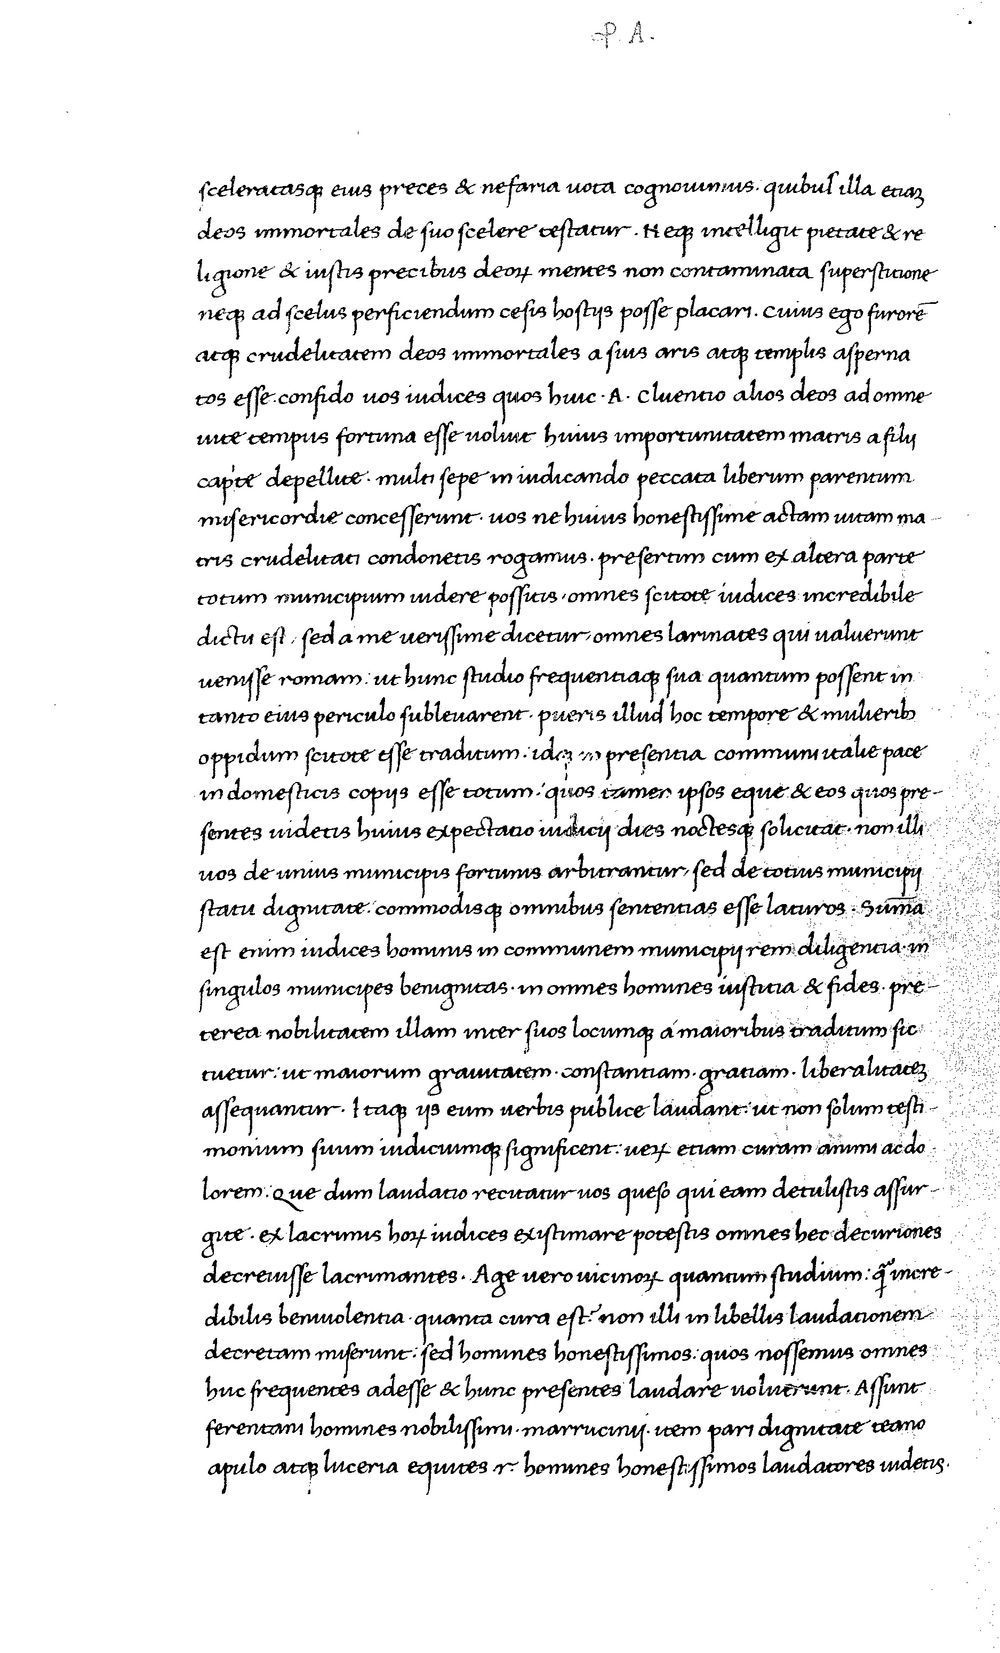 P. A.
sceleratasq; eius preces & nefaria uota cognouimus. quibus illa etiaꝫ
deos immortales de suo scelere testatur. Neq; intelligit pietate & re
ligione & iustis precibus deoꝝ mentes non contaminata superstitione
neq; ad scelus perficiendum cesis hostijs posse placari. Cuius ego furorē
atq; crudelitatem deos immortales a suis aris atq; templis asperna
tos esse confido uos iudices quos huic · A · Cluentio alios deos ad omne
uite tempus fortuna esse uoluit huius importunitatem matris a filij
capite depellite. multi sepe in iudicando peccata liberum parentum
misericordie concesserunt. uos ne huius honestissime actam uitam ma
tris crudelitati condonetis rogamus. presertim cum ex altera parte
totum municipium uidere possitis, omnes scitote iudices incredibile
dictu est, sed a me uerissime dicetur, omnes larinates qui ualuerunt
uenisse romam: ut hunc studio frequentiaq; sua quantum possent in
tanto eius periculo subleuarent. pueris illud hoc tempore & mulierib;
oppidum scitote esse traditum: idq; in presentia communi italie pace
in domesticis copijs esse totum: quos tamen ipsos eque & eos quos pre-
sentes uidetis huius expectatio iudicij dies noctesq; solicitat. non illi
uos de unius municipis fortunis arbitrantur, sed de totius municipij
statu dignitate. commodisq; omnibus sententias esse laturos. Sum̄a
est enim iudices hominis in communem municipij rem diligentia. in
singulos municipes benignitas. in omnes homines iustitia & fides. pre-
terea nobilitatem illam inter suos locumq; a maioribus traditum sic
tuetur: ut maiorum grauitatem. constantiam. gratiam. liberalitateꝫ
assequantur. Itaq; ijs eum uerbis publice laudant: ut non solum testi-
monium suum iudiciumq; significent: ueꝝ etiam curam animi ac do
lorem: Que dum laudatio recitatur uos queso qui eam detulistis assur-
gite. ex lacrimis hoꝝ iudices existimare potestis omnes hec decuriones
decreuisse lacrimantes. Age uero uicinoꝝ quantum studium: q̃ incre-
dibilis beniuolentia. quanta cura est? non illi in libellis laudationem
decretam miserunt: sed homines honestissimos: quos nossemus omnes
huc frequentes adesse & hunc presentes laudare uoluerunt. Assunt
ferentani homines nobilissimi. marrucinij. item pari dignitate teano
apulo atq; luceria equites .r. homines honestissimos laudatores uidetis.